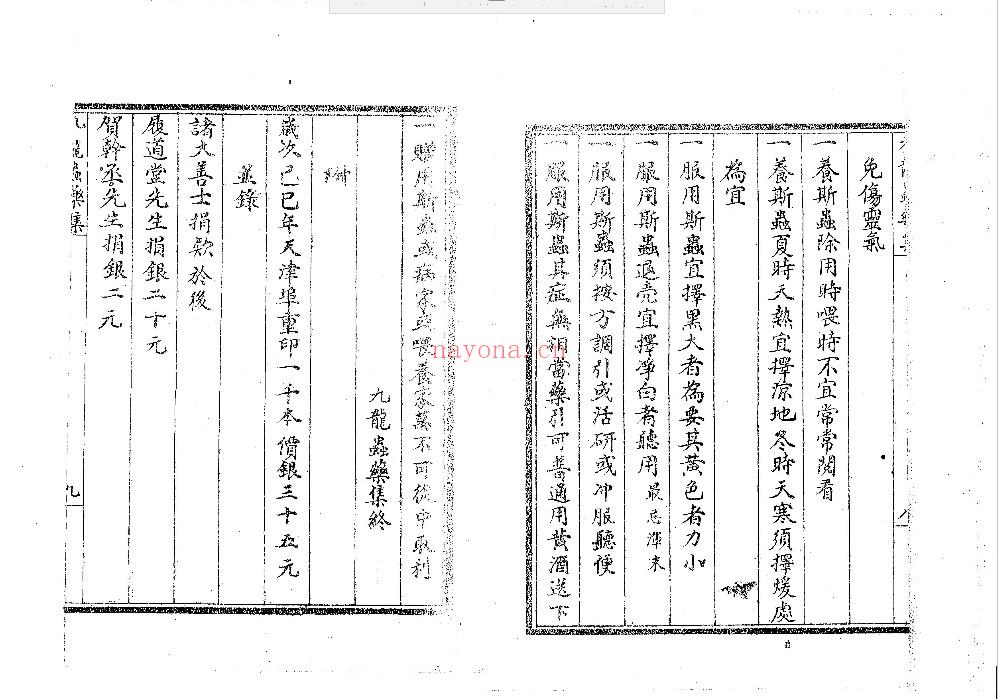 免傷靈氣
一養斯蟲除用時喂時不宜常常閱看
一養斯蟲夏時天熱宜擇凉地冬時天寒須擇煖處
為宜
一服用斯蟲宜擇黑大者為要其黃色者力小
一服用斯蟲退亮宜擇淨白者聽用最忌渾末
一服用斯蟲須按方調引或活研或冲服聽便
一服用斯蟲其症無相當藥引可普通用黃酒送下
八
一購用斯蟲或病家或喂養家萬不可從中取利
九龍蟲藥集終
歲次己巳年天津埠重印一千本價銀三十五元
並錄
諸大善士捐欵於後
履道堂先生捐銀二十元
賀幹丞先生捐銀二元
九龍蟲藥集
九
nayona.cn